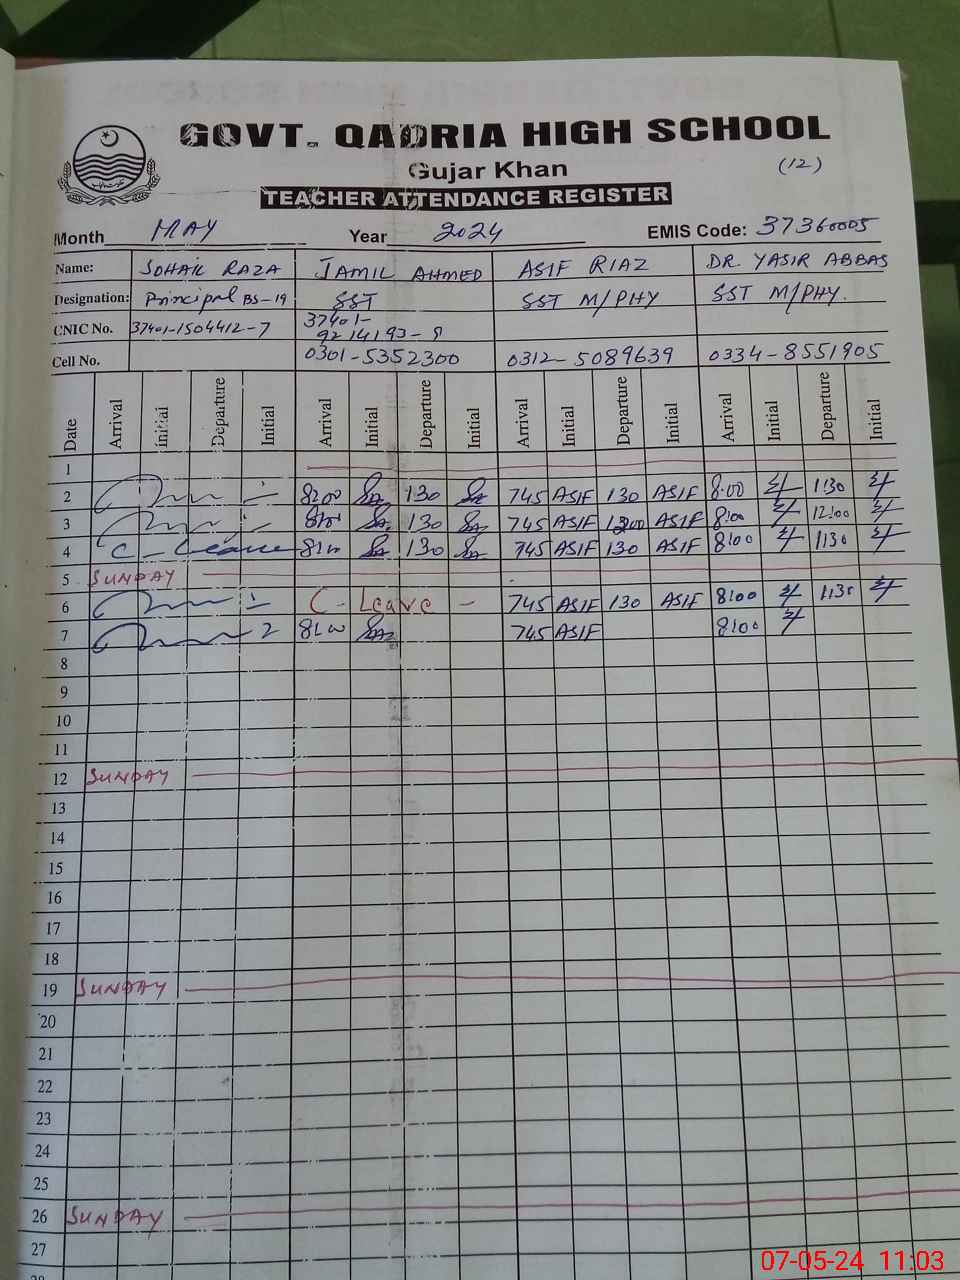 GOVT. QADRIA HIGH SCHOOL
Gujar Khan
(12)
TEACHER ATTENDANCE REGISTER
Month MAY Year 2024 EMIS Code: 37360005
Name: SOHAIL RAZA JAMIL AHMED ASIF RIAZ DR. YASIR ABBAS
Designation: Principal BS-19 SST SST M/PHY SST M/PHY.
CNIC No. 37401-1504412-7 37401-
9214193-9
Cell No. 0301-5352300 0312-5089639 0334-8551905
Date Arrival Initial Departure Initial Arrival Initial Departure Initial Arrival Initial Departure Initial Arrival Initial Departure Initial
1
2 8:00 130 745 ASIF 130 ASIF 8:00 1:30
3 130 745 ASIF 1200 ASIF 8:00 12:00
4 C-Leave 130 745 ASIF 130 ASIF 8:00 1:30
5 SUNDAY
6 C-Leave 745 ASIF 130 ASIF 8:00 1:30
7 8:00 745 ASIF 8:00
8
9
10
11
12 SUNDAY
13
14
15
16
17
18
19 SUNDAY
20
21
22
23
24
25
26 SUNDAY
27
28
07-05-24 11:03